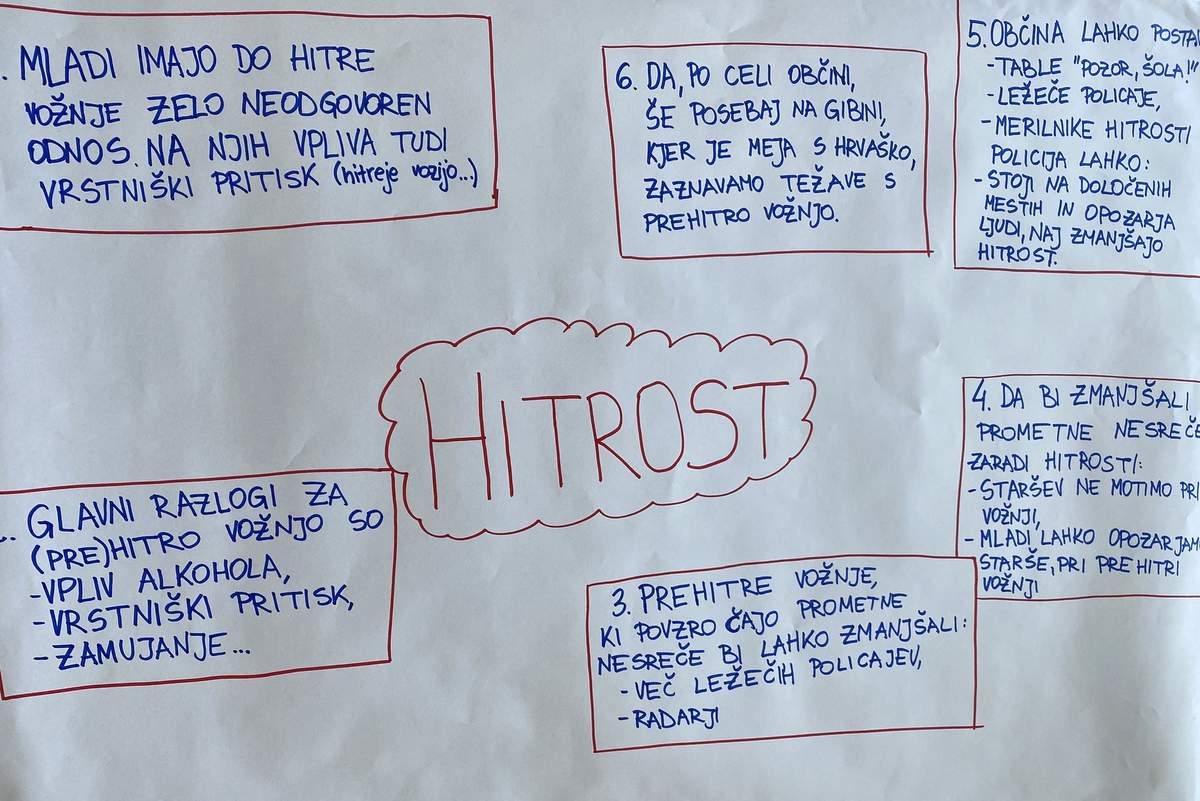 . MLADI IMAJO DO HITRE
VOŽNJE ZELO NEODGOVOREN
ODNOS. NA NJIH VPLIVA TUDI
VRSTNIŠKI PRITISK (hitreje vozijo...)
. GLAVNI RAZLOGI ZA
(PRE)HITRO VOŽNJO SO
-VPLIV ALKOHOLA,
-VRSTNIŠKI PRITISK,
-ZAMUJANJE...
HITROST
3. PREHITRE VOŽNJE,
KI POVZROČAJO PROMETNE
NESREČE BI LAHKO ZMANJŠALI:
-VEČ LEŽEČIH POLICAJEV,
-RADARJI
4. DA BI ZMANJŠALI
PROMETNE NESREČE
ZARADI HITROSTI:
-STARŠEV NE MOTIMO PRI
VOŽNJI,
-MLADI LAHKO OPOZARJAMO
STARŠE, PRI PREHITRI
VOŽNJI
5. OBČINA LAHKO POSTA
-TABLE "POZOR, ŠOLA!"
-LEŽEČE POLICAJE,
-MERILNIKE HITROSTI
POLICIJA LAHKO:
-STOJI NA DOLOČENIH
MESTIH IN OPOZARJA
LJUDI, NAJ ZMANJŠAJO
HITROST.
6. DA, PO CELI OBČINI,
ŠE POSEBAJ NA GIBINI,
KJER JE MEJA S HRVAŠKO,
ZAZNAVAMO TEŽAVE S
PREHITRO VOŽNJO.